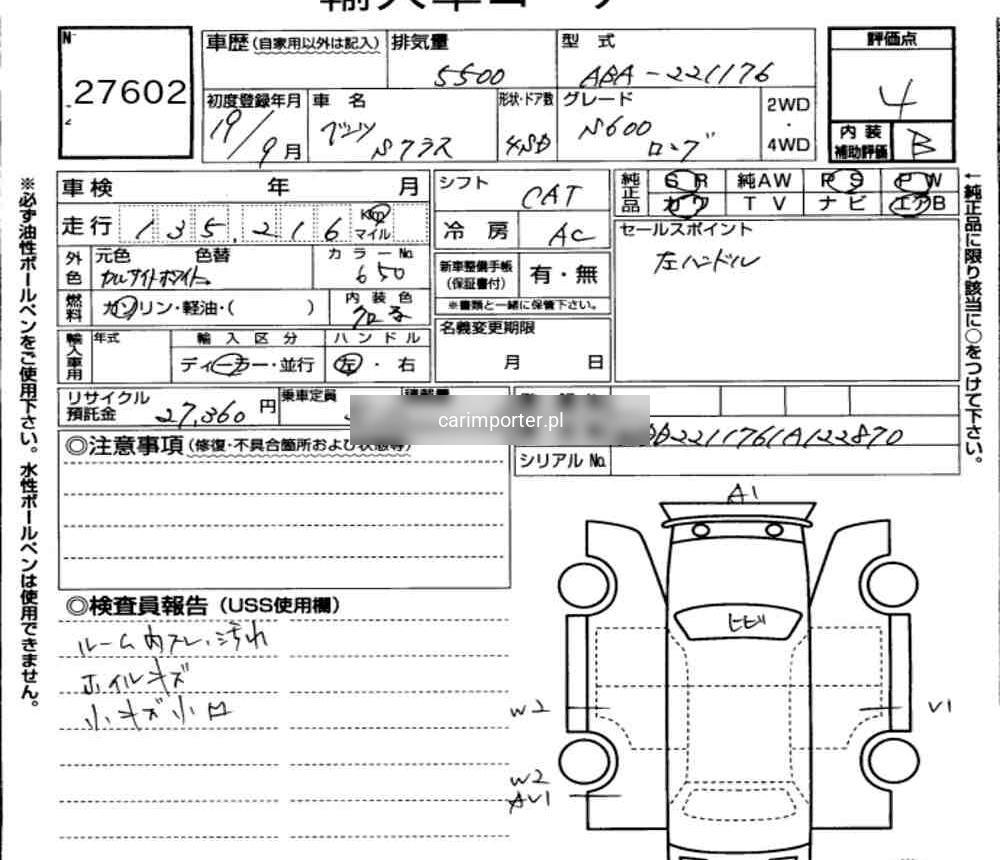 輸入車コーナー
№
27602
車歴(自家用以外は記入) 排気量 5500 型式 ABA-221176
初度登録年月 19/9月 車名 ベンツ Sクラス 形状・ドア数 4SD グレード S600 ロング 2WD・4WD
評価点 4
内装補助評価 B
車検 年 月
走行 135,216 Km マイル
シフト CAT
冷房 AC
純正品 SR 純AW PS PW
カワ TV ナビ エアB
外色 元色 色替 カルサイトホワイト カラーNo. 650
新車整備手帳(保証書付) 有・無
※書類と一緒に保管下さい。
セールスポイント
左ハンドル
燃料 ガソリン・軽油・( ) 内装色 クロ系
名義変更期限 月 日
輸入車用 年式 輸入区分 ディーラー・並行 ハンドル 左・右
リサイクル預託金 27,360円 乗車定員
carimporter.pl
2211761A122870
シリアルNo.
◎注意事項(修復・不具合箇所および状態等)
◎検査員報告(USS使用欄)
ルーム内スレ・汚れ
ホイルキズ
小キズ小凹
A1
ヒビ
W2
V1
W2
AV1
※必ず油性ボールペンをご使用下さい。水性ボールペンは使用できません。
←純正品に限り該当に○をつけて下さい。